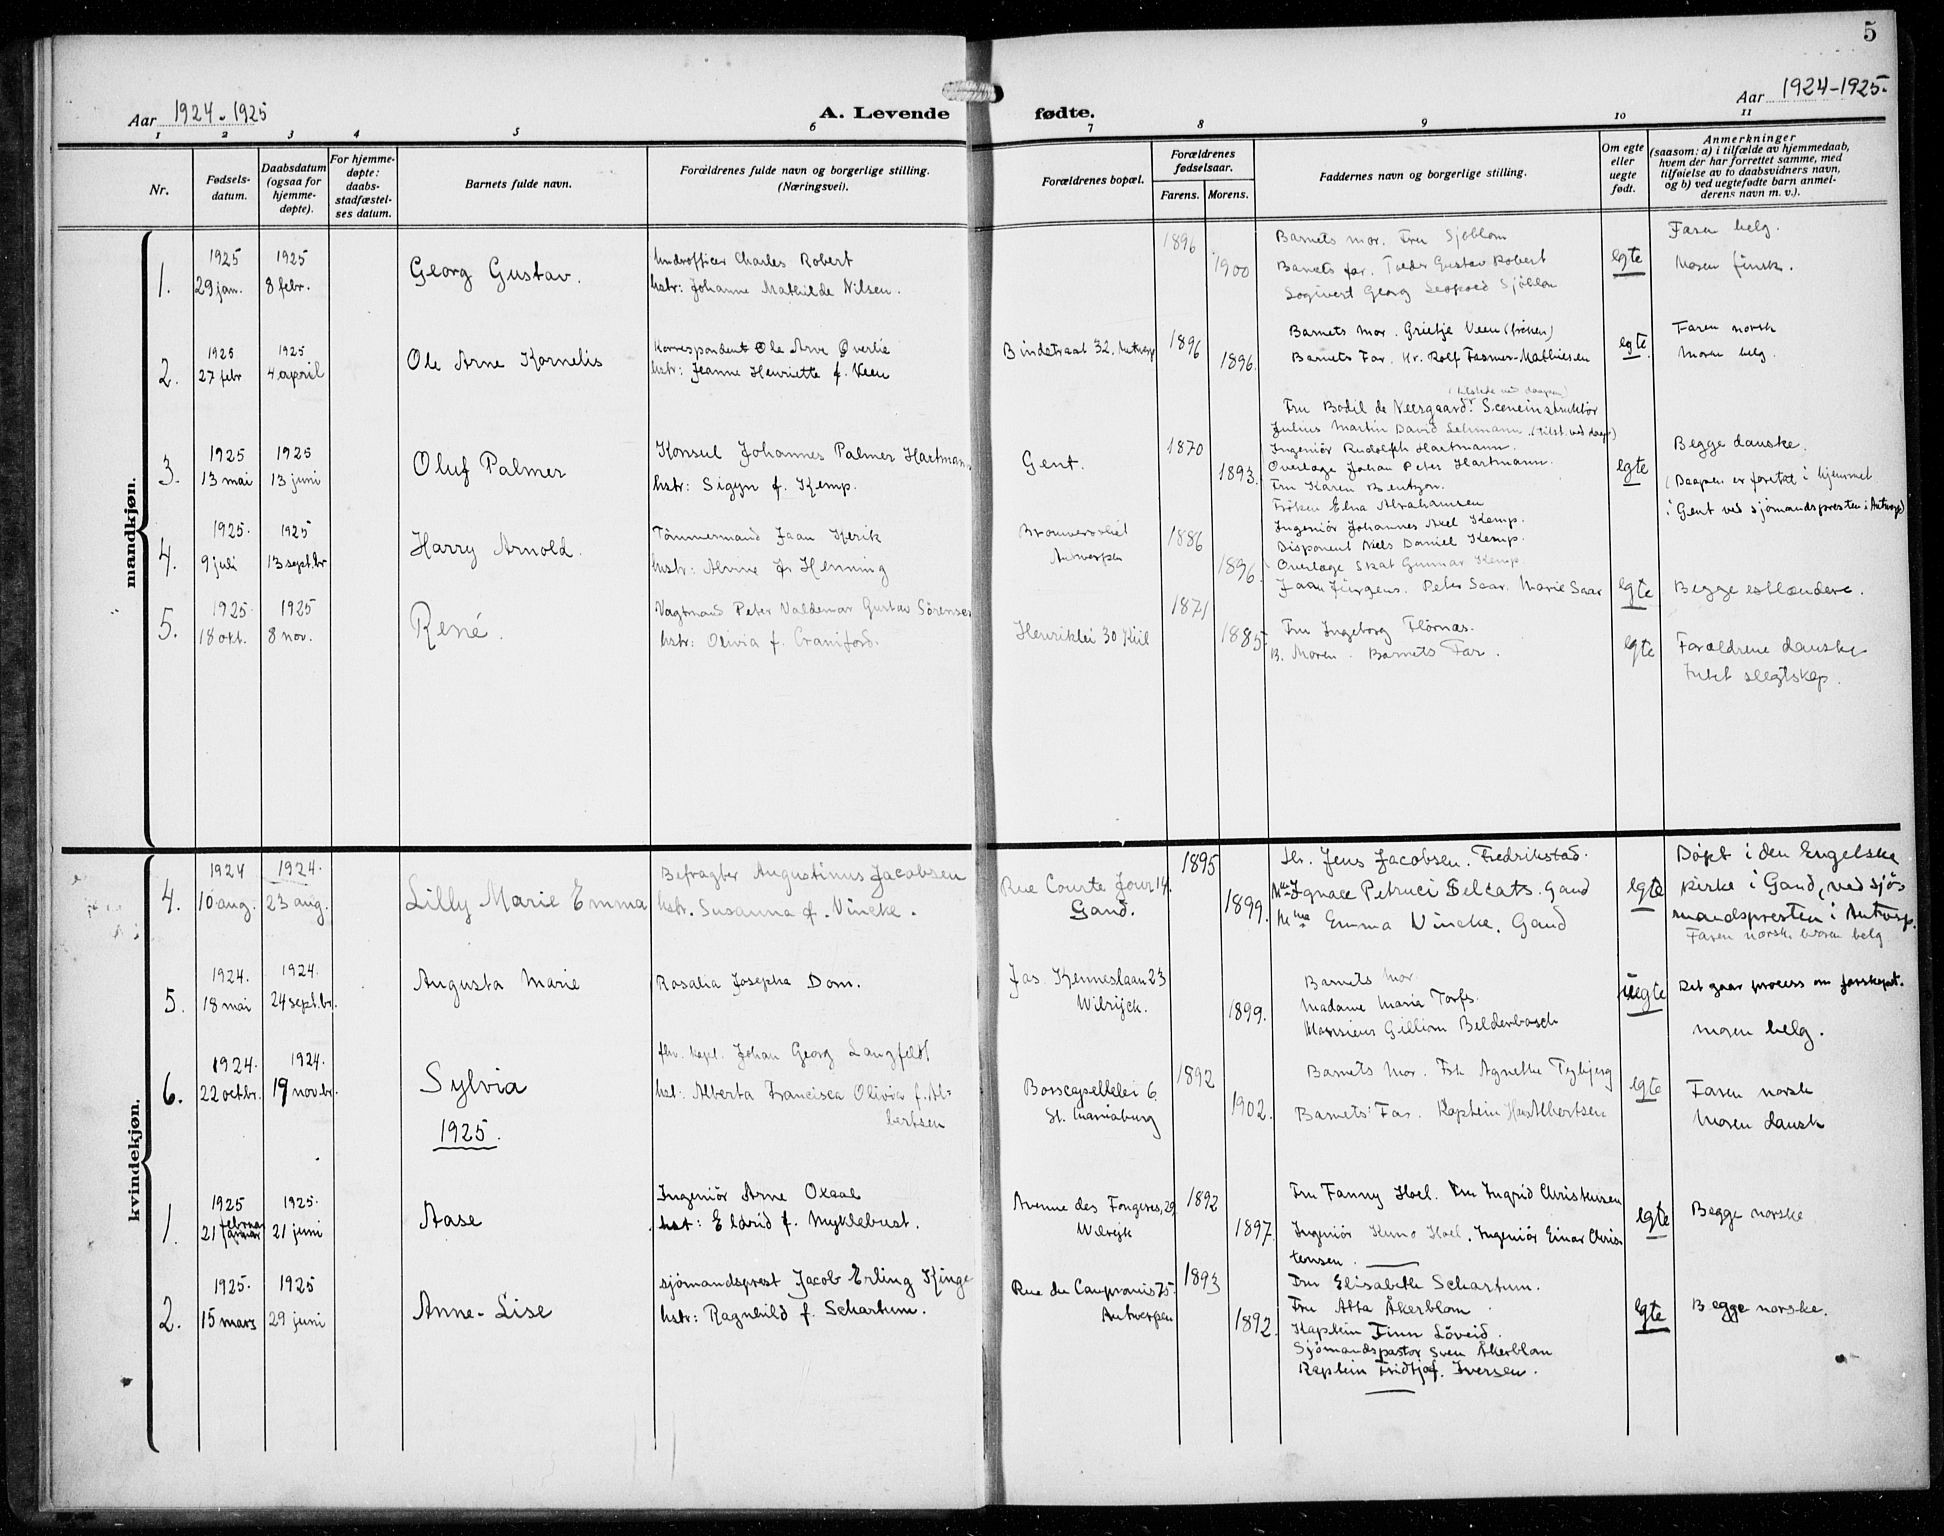 5
Aar 1924-1925
A. Levende fødte.
Aar 1924-1925.
1 2 3 4 5 6 7 8 9 10 11
Nr.
Fødsels-
datum.
Daabsdatum
(ogsaa for
hjemme-
døpte).
For hjemme-
døpte:
daabs-
stadfæstel-
ses datum.
Barnets fulde navn.
Forældrenes fulde navn og borgerlige stilling.
(Næringsvei).
Forældrenes bopæl.
Forældrenes
fødselsaar.
Farens. Morens.
Faddernes navn og borgerlige stilling.
Om egte
eller
uegte
født.
Anmerkninger
(saasom: a) i tilfælde av hjemmedaab,
hvem der har forrettet samme, med
tilføielse av to daabsvidners navn,
og b) ved uegtefødte barn anmel-
derens navn m. v.).
mandkjøn.
1.
1925
29 jan.
1925
8 febr.
Georg Gustav.
Charles Robert
hstr: Johanne Mathilde Nilsen.
1896
1900
Barnets mor. Fru Sjöblom
Barnets far. Gustav Robert
Georg Leopold Sjöblom
egte
Faren belg.
Moren finsk.
2.
1925
27 febr
1925
4 april
Ole Arne Kornelis
Korrespondent Ole Arne Øverlie
hstr: Jeanne Henriette f. Veen
Bindstraat 32. Antwerp
1896
1896.
Barnets mor. Grietje Veen (frøken)
Barnets Far. Hr. Rolf Fasmer-Mathiesen
egte.
Faren norsk
Moren belg.
3.
1925
13 mai
1925
13 juni
Oluf Palmer
Konsul Johannes Palmer Hartmann
hstr: Sigyn f. Kemp.
Gent.
1870
1893.
Fru Bodil de Neergaard. Sceneinstruktør
Julius Martin David Lehmann. (tilst. ved daap)
Ingeniør Rudolph Hartmann.
Overlæge Johan Peter Hartmann.
Fru Karen Bentzon.
Frøken Elna Abrahamsen
Ingeniør Johannes Axel Kemp.
Disponent Niels Daniel Kemp.
Overlæge Skat Gunnar Kemp
egte
Begge danske.
(Daapen er foretat i hjemmet
i Gent ved sjømandspresten i Antwerp)
4.
1925.
9 juli
1925
13 septbr
Harry Arnold.
Tömmermand Jaan
hstr: Alvine f. Henning
Antwerpen
1886
1896.
Jaan Jürgens. Peter Saar. Marie Saar
egte
Begge estlændere.
5.
1925.
18 okt.
1925
8 nov.
René.
Vagtmand Peter Valdemar Gustav Sörensen
hstr: Olivia f. Craniford.
Henriklei 30 Kiil
1871
1885.
Fru Ingeborg Flörnæs.
B. Moren. Barnets Far.
egte
Forældrene danske
Intet slegtskap.
kvindekjøn.
4.
1924
10 aug.
1924.
23 aug.
Lilly Marie Emma
Befragter Augustinus Jacobsen
hstr. Susanna f. Vincke.
Rue Courte Jour 14.
Gand.
1895
1899.
Hr. Jens Jacobsen. Fredrikstad.
Ignace Petruci Delcats. Gand
Mme Emma Vincke. Gand
egte
Døpt i den Engelske
Kirke i Gand, ved sjø-
mandspresten i Antwerp.
Faren norsk Moren belg
5.
1924.
18 mai
1924.
24 septbr.
Augusta Marie
Rosalia Josepha Dom.
Jas. Kenneslaan 23
Wilrijck.
1899.
Barnets Mor
Madame Maria Torfs.
Monsieur Gilliom Belderbosch
uegte
Det gaar process om farskapet.
Moren belg.
6.
1924.
22 octbr.
1924.
19 novbr.
Sylvia
Johan Georg Langfeldt
hst: Alberta Francisca Olivia f. Al-
bertsen
6
St. Mariaburg
1892
1902.
Barnets Mor. Frk Agnethe Tybjerg
Barnets Far. Kaptein Albertsen
egte
Faren norsk
Moren dansk
1925.
1.
1925
21 februar
1925.
21 juni
Aase
Ingeniør Arne Oxaal
hst: Eldrid f. Myklebust.
Avenue des Fougeres, 29
Wilrijk
1892
1897.
Fru Fanny Hoel. Fru Ingrid Christensen
Ingeniør Kuno Hoel. Ingeniør Einar Chris-
tensen.
egte
Begge norske
2.
1925.
15 mars
1925
29 juni
Anne-Lise
sjømandsprest Jacob Erling Kinge
hstr: Ragnhild f. Schartum.
Rue du Compromis 75.
Antwerpen
1893
1892.
Fru Elisabeth Schartum.
Fru Åkerblom
Kaptein Finn Løveid.
Sjømandspastor Sven Åkerblom
Kaptein Fridtjof. Iversen.
egte
Begge norske.